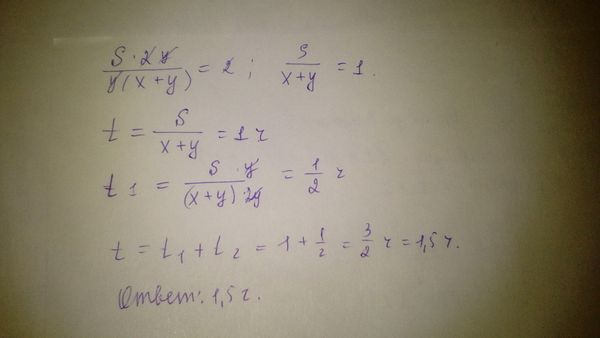 S · 2y / y(x+y) = 2 ; S / x+y = 1.
t = S / x+y = 1 ч
t1 = S · y / (x+y) 2y = 1/2 ч
t = t1 + t2 = 1 + 1/2 = 3/2 ч = 1,5 ч.
Ответ: 1,5 ч.